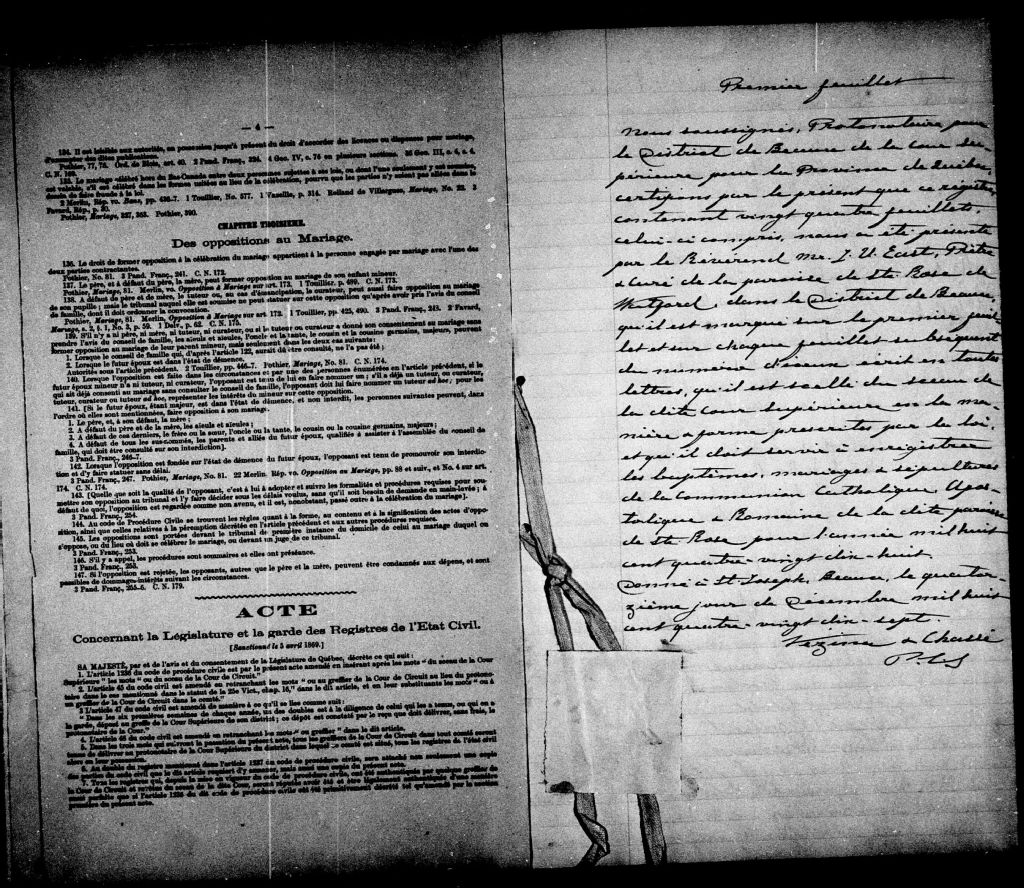 — 4 —
134. Il est loisible aux autorités, en possession jusqu'à présent du droit d'accorder des licences ou dispenses pour mariage,
d'exempter des dites publications.
Pothier, 77, 78. Ord. de Blois, art. 40. 2 Pand. Franç., 234. 4 Geo. IV, c. 75 en plusieurs sections. 35 Geo. III, c. 4, s. 4.
C. N. 169.
135. Le mariage célébré hors du Bas-Canada entre deux personnes sujettes à ses lois, ou dont l'une seulement y est soumise,
est valable, s'il est célébré dans les formes usitées au lieu de la célébration, pourvu que les parties n'y soient pas allées dans le
dessein de faire fraude à la loi.
2 Merlin, Rép. vo. Bans, pp. 436-7. 1 Touillier, No. 577. 1 Vazeille, p. 314. Rolland de Villargues, Mariage, No. 23. 3
Favard, Rép., p. 50.
Pothier, Mariage, 327, 363. Pothier, 390.
CHAPITRE TROISIEME.
Des oppositions au Mariage.
136. Le droit de former opposition à la célébration du mariage appartient à la personne engagée par mariage avec l'une des
deux parties contractantes.
Pothier, No. 81. 3 Pand. Franç., 241. C. N. 172.
137. Le père, et à défaut du père, la mère, peut former opposition au mariage de son enfant mineur.
Pothier, Mariage, 81. Merlin, vo. Opposition à Mariage sur art. 173. 1 Touillier, p. 490. C. N. 173.
138. A défaut de père et de mère, le tuteur ou, en cas d'émancipation, le curateur, peut aussi faire opposition au mariage
de son pupille ; mais le tribunal auquel elle est soumise ne peut statuer sur cette opposition qu'après avoir pris l'avis du conseil
de famille, dont il doit ordonner la convocation.
Pothier, Mariage, 81. Merlin, Opposition à Mariage sur art. 172. 1 Touillier, pp. 425, 490. 3 Pand. Franç., 243. 2 Favard,
Mariage, s. 2, § 1, No. 2, p. 59. 1 Dalv., p. 62. C. N. 175.
139. S'il n'y a ni père, ni mère, ni tuteur, ni curateur, ou si le tuteur ou curateur a donné son consentement au mariage sans
prendre l'avis du conseil de famille, les aïeuls et aïeules, l'oncle et la tante, le cousin et la cousine germains, majeurs, peuvent
former opposition au mariage de leur parent mineur, mais seulement dans les deux cas suivants :
1. Lorsque le conseil de famille qui, d'après l'article 122, aurait dû être consulté, ne l'a pas été ;
2. Lorsque le futur époux est dans l'état de démence.
Autorités sous l'article précédent. 2 Touillier, pp. 446-7. Pothier, Mariage, No. 81. C. N. 174.
140. Lorsque l'opposition est faite dans les circonstances et par une des personnes énumérées en l'article précédent, si le
futur époux mineur n'a ni tuteur, ni curateur, l'opposant est tenu de lui en faire nommer un ; s'il a déjà un tuteur, ou curateur
qui ait déjà consenti au mariage sans consulter le conseil de famille, l'opposant doit lui faire nommer un tuteur ad hoc ; pour les
tuteur, curateur ou tuteur ad hoc, représenter les intérêts du mineur sur cette opposition.
141. [Si le futur époux, étant majeur, est dans l'état de démence, et non interdit, les personnes suivantes peuvent, dans
l'ordre où elles sont mentionnées, faire opposition à son mariage.
1. Le père, et, à son défaut, la mère ;
2. A défaut du père et de la mère, les aïeuls et aïeules ;
3. A défaut de ces derniers, le frère ou la sœur, l'oncle ou la tante, le cousin ou la cousine germains, majeurs ;
4. A défaut de tous les sus-nommés, les parents et alliés du futur époux, qualifiés à assister à l'assemblée du conseil de
famille, qui doit être consulté sur son interdiction].
3 Pand. Franç., 246-7.
142. Lorsque l'opposition est fondée sur l'état de démence du futur époux, l'opposant est tenu de promouvoir son interdic-
tion et d'y faire statuer sans délai.
3 Pand. Franç., 247. Pothier, Mariage, No. 81. 22 Merlin. Rép. vo. Opposition au Mariage, pp. 88 et suiv., et No. 4 sur art.
174. C. N. 174.
143. [Quelle que soit la qualité de l'opposant, c'est à lui à adopter et suivre les formalités et procédures requises pour sou-
mettre son opposition au tribunal et l'y faire décider sous les délais voulus, sans qu'il soit besoin de demande en main-levée ; à
défaut de quoi, l'opposition est regardée comme non avenue, et il est, nonobstant, passé outre à la célébration du mariage].
3 Pand. Franç., 254.
144. Au code de Procédure Civile se trouvent les règles quant à la forme, au contenu et à la signification des actes d'oppo-
sition, ainsi que celles relatives à la péremption décrétée en l'article précédent et aux autres procédures requises.
145. Les oppositions sont portées devant le tribunal de première instance du domicile de celui au mariage duquel on
s'oppose, ou du lieu où doit se célébrer le mariage, ou devant un juge de ce tribunal.
3 Pand. Franç., 253.
146. S'il y a appel, les procédures sont sommaires et elles ont préséance.
3 Pand. Franç., 253.
147. Si l'opposition est rejetée, les opposants, autres que le père et la mère, peuvent être condamnés aux dépens, et sont
passibles de dommage-intérêts suivant les circonstances.
3 Pand. Franç., 255-6. C. N. 179.
ACTE
Concernant la Législature et la garde des Registres de l'Etat Civil.
[Sanctionné le 5 avril 1869.]
SA MAJESTÉ, par et de l'avis et du consentement de la Législature de Québec, décrète ce qui suit :
1. L'article 1236 du code de procédure civile est par le présent acte amendé en insérant après les mots " du sceau de la Cour
Supérieure " les mots " ou du sceau de la Cour de Circuit."
2. L'article 45 du code civil est amendé en retranchant les mots " ou au greffier de la Cour de Circuit au lieu du protono-
taire dans le cas mentionné dans le statut de la 25e Vict., chap. 16," dans le dit article, et en leur substituants les mots " ou à
un greffier de la Cour de Circuit dans le comté."
3 L'article 47 du code civil est amendé de manière à ce qu'il se lise comme suit :
" Dans les six premières semaines de chaque année, un des doubles est à la diligence de celui qui les a tenus, ou qui en a
la garde, déposé au greffe de la Cour Supérieure de son district ; ce dépôt est constaté par le reçu que doit délivrer, sans frais, le
protonotaire de la Cour."
4. L'article 48 du code civil est amendé en retranchant les mots " ou greffier " dans le dit article.

Premier feuillet
Nous soussignés, Protonotaire pour
le District de Beauce de la Cour Su-
périeure pour la Province de Québec,
certifions par le présent que ce régistre,
contenant vingt quatre feuillets,
celui-ci compris, nous a été présenté
par le Révérend Mr. J. U. East, Prêtre
& curé de la paroisse de Ste Rose de
Watford, dans le District de Beauce,
qu'il est marqué sur le premier feuil-
let et sur chaque feuillet subséquent
du numéro d'iceux écrit en toutes
lettres, qu'il est scellé du sceau de
la dite Cour Supérieure en la ma-
nière & forme prescrites par la loi,
et qu'il doit servir à enregistrer
les baptêmes, mariages & sépultures
de la Communion Catholique Apos-
tolique & Romaine de la dite paroisse
de Ste Rose pour l'année mil huit
cent quatre-vingt dix-huit.
Donné à St Joseph, Beauce, le quator-
zième jour de Décembre mil huit
cent quatre-vingt dix-sept.
Vézina & Chassé
P.C.S